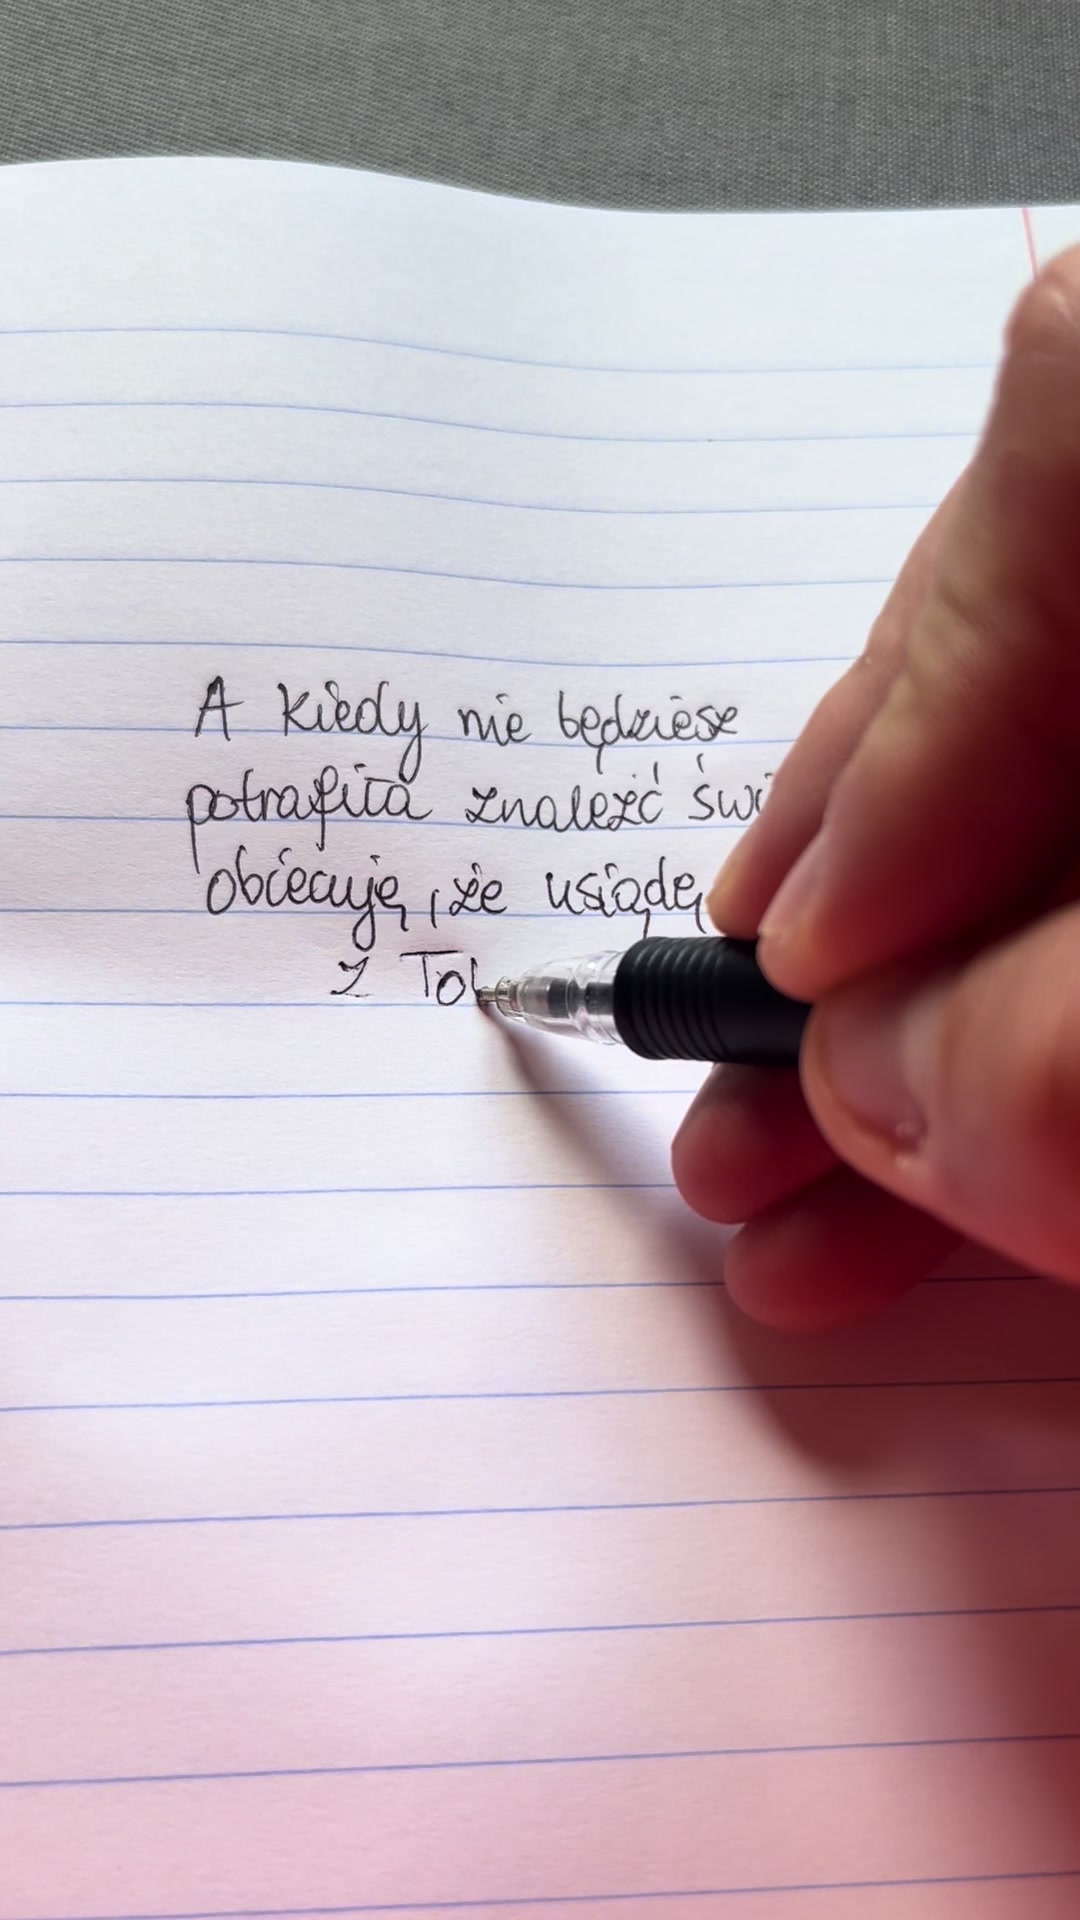 A kiedy nie będziesz
potrafiła znaleźć
obiecuję, że usiądę
z